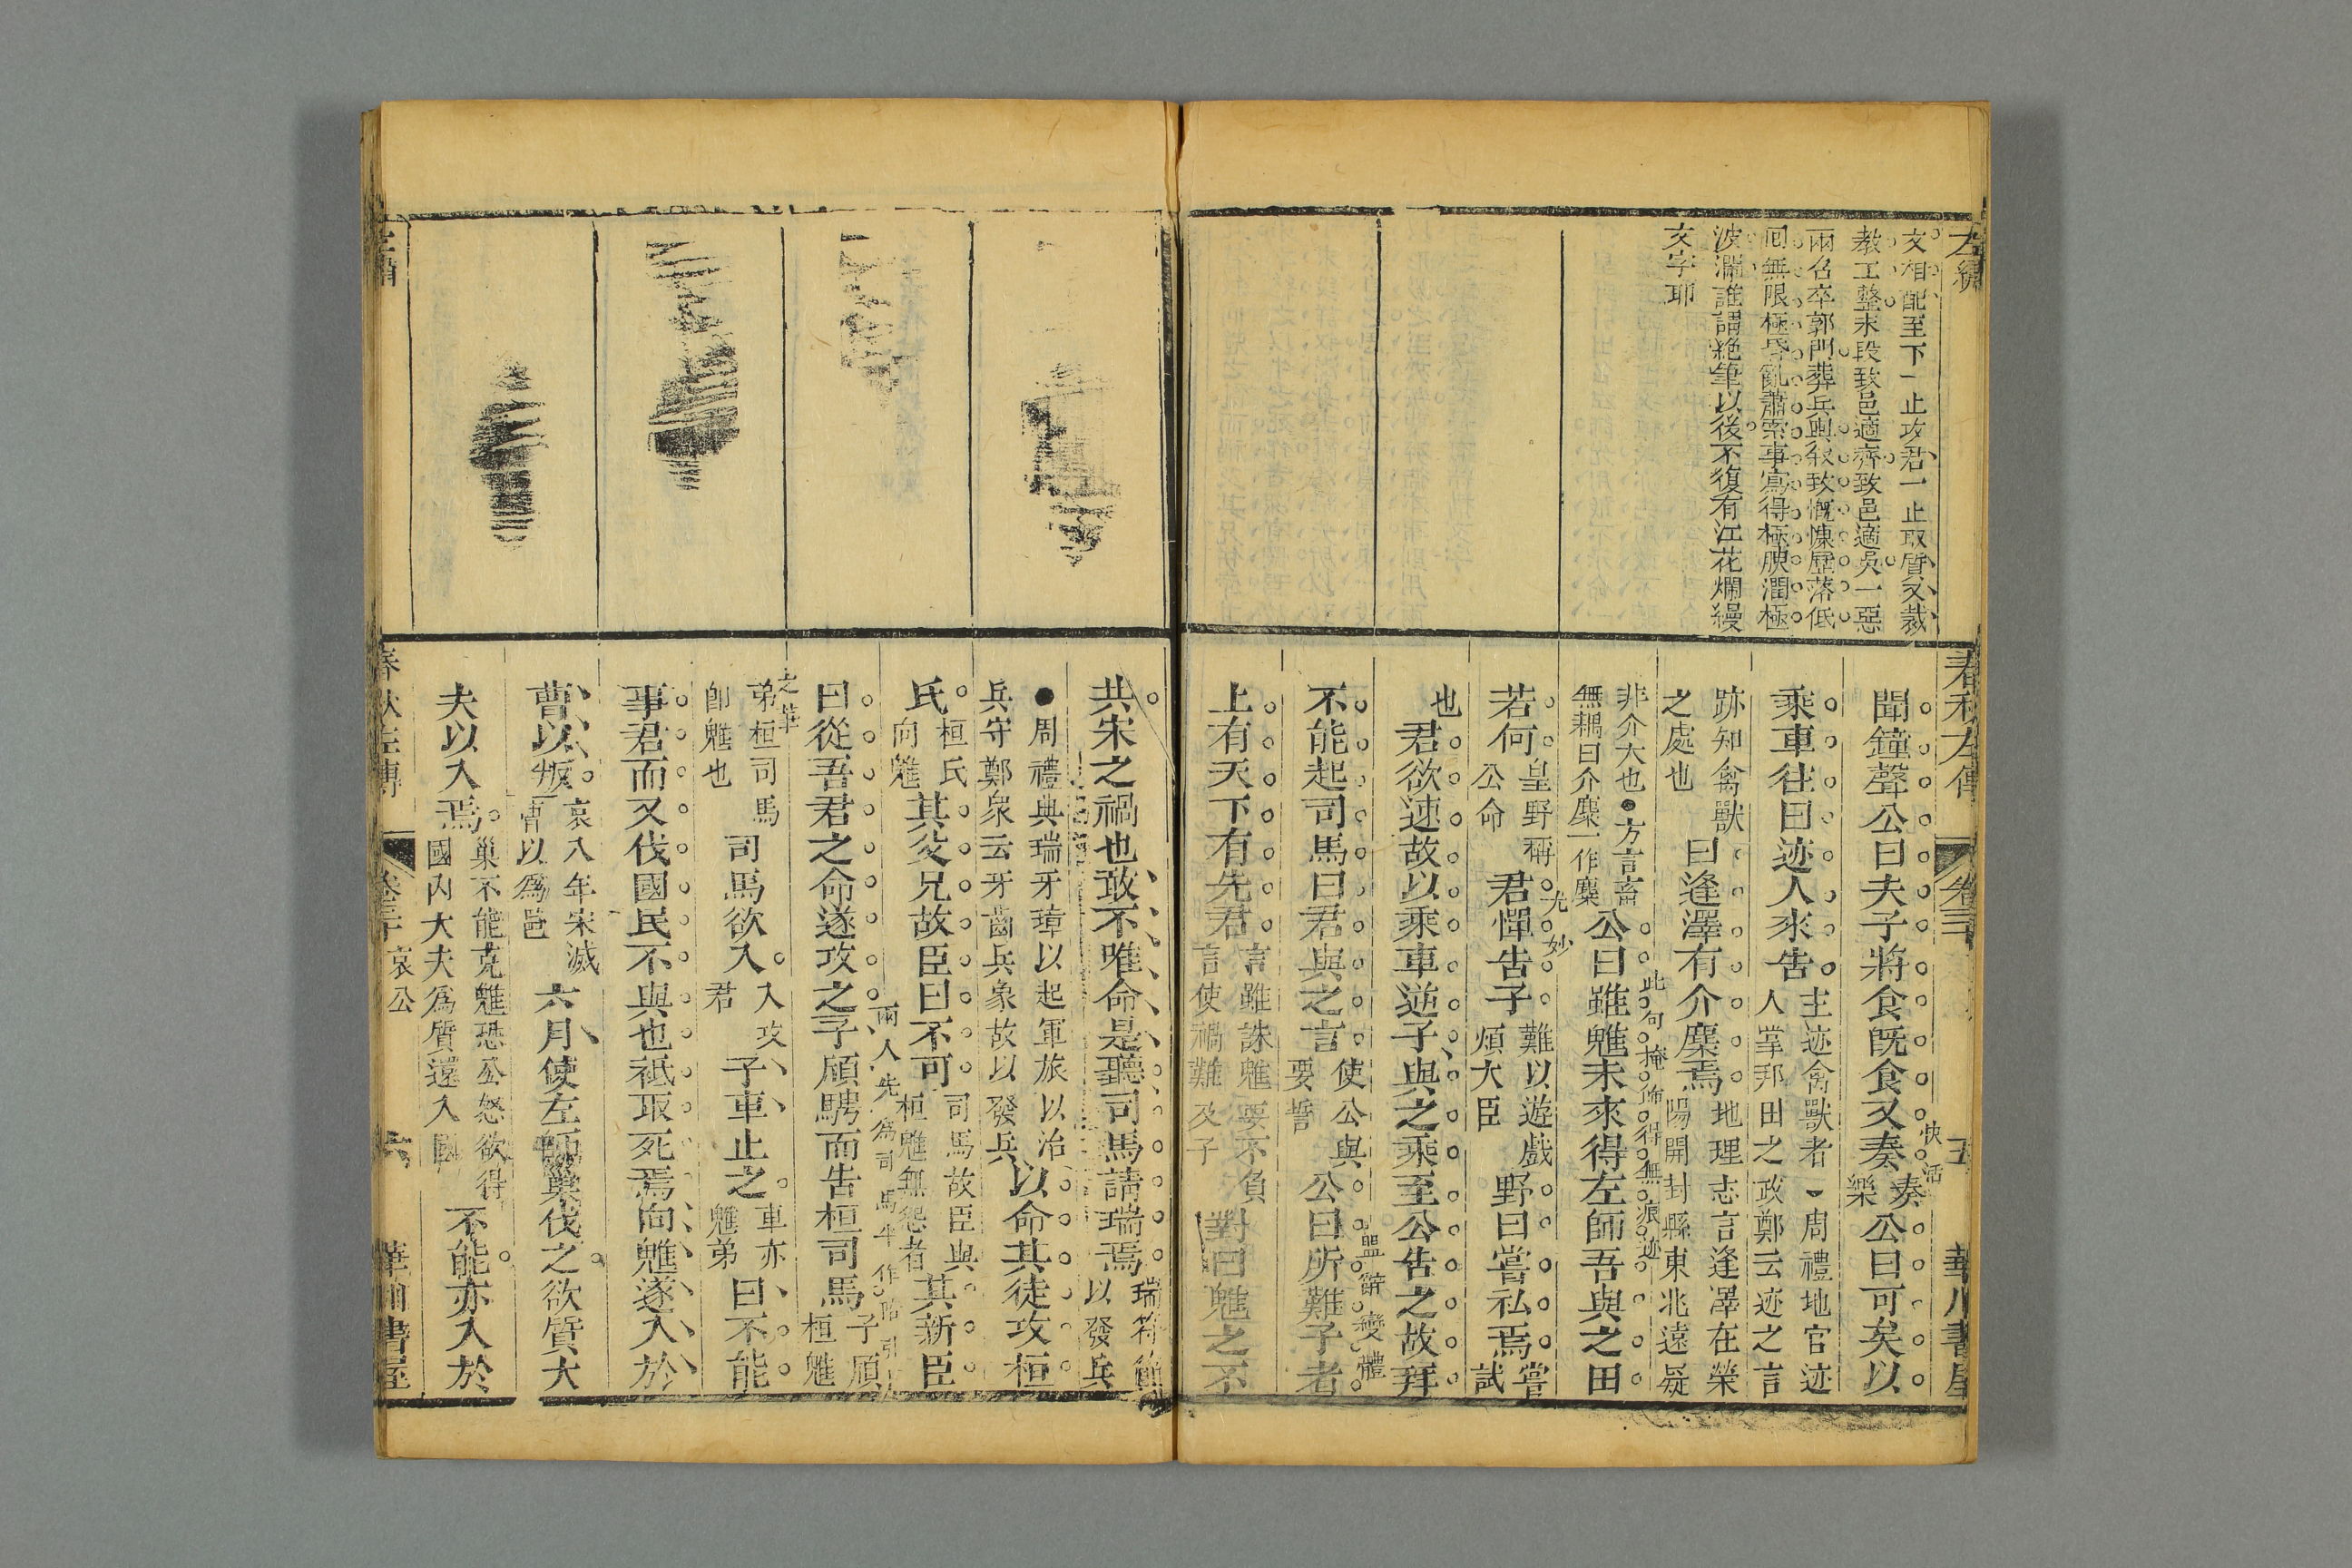 左繡
文相配至下一止攻君一止取質又裁
教工整末段致邑適齊致邑適吳一惡
兩召卒郭門葬兵輿叙致慨悚歷落低
囘無限極昏亂蕭索事寫得極腴潤極
波瀾誰謂絶筆以後不復有江花爛縵
文字耶
春秋左傳 卷三十 五 華川書屋
聞鐘聲公曰夫子將食旣食又奏奏樂公曰可矣以
快活
乘車往曰迹人來告主迹禽獸者周禮地官迹人掌邦田之政鄭云迹之言
跡知禽獸之處也曰逢澤有介麋焉地理志言逢澤在滎陽開封縣東北遠疑
非介大也●方言畜無耦曰介麋一作麇公曰雖魋未來得左師吾與之田
此句掩飾得無痕迹
若何皇野稱公命君憚告子難以遊戲煩大臣野曰嘗私焉嘗試
尤妙
也君欲速故以乘車逆子與之乘至公告之故拜
不能起司馬曰君與之言使公與要誓公曰所難子者
盟辭變體
上有天下有先君言雖誅魋要不負言使禍難及子對曰魋之不
共宋之禍也敢不唯命是聽司馬請瑞焉瑞符節以發兵
●周禮典瑞牙璋以起軍旅以治兵守鄭衆云牙齒兵象故以發兵以命其徒攻桓
氏桓氏向魋其父兄故臣曰不可司馬故臣與桓魋無怨者其新臣
曰從吾君之命遂攻之子頎騁而告桓司馬子頎桓魋
兩人先爲司馬牛作陪引
弟桓司馬卽魋也司馬欲入入攻君子車止之車亦魋弟曰不能
之華
事君而又伐國民不與也衹取死焉向魋遂入於
曹以叛哀八年宋滅曹以爲邑六月使左師巢伐之欲質大
夫以入焉巢不能克魋恐公怒欲得國內大夫爲質還入國不能亦入於
左繡
春秋左傳 卷三十 哀公 六 華川書屋